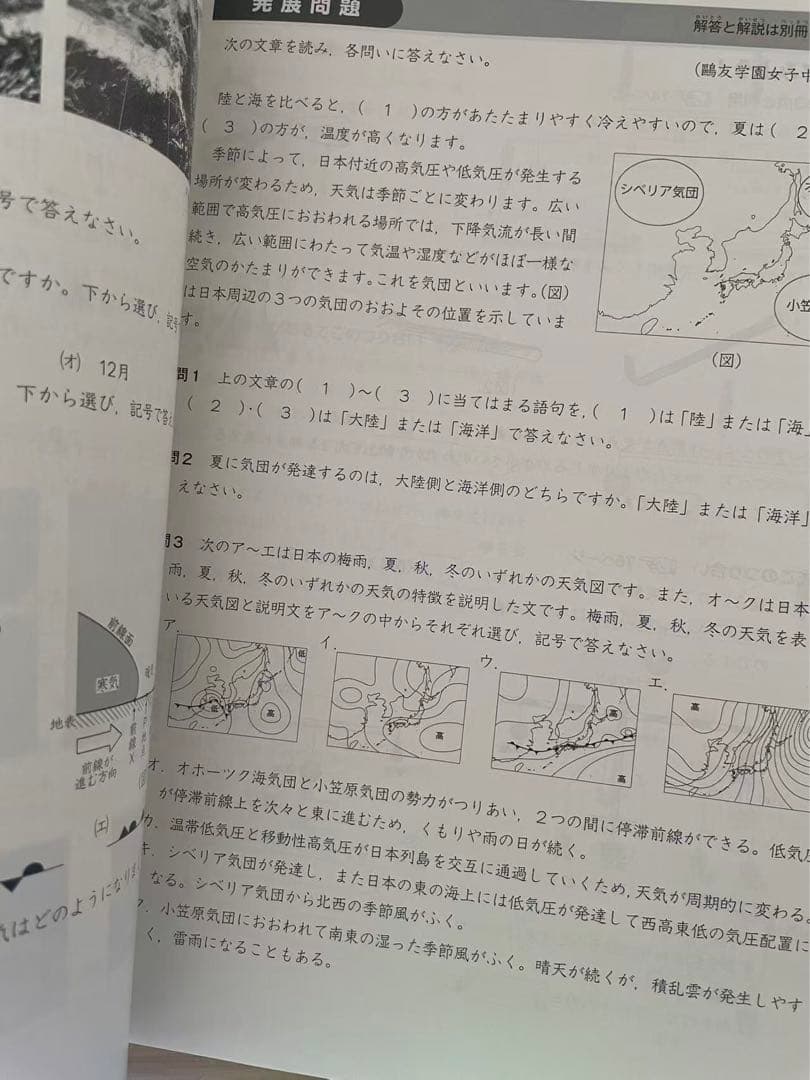 発展問題
解答と解説は別冊
次の文章を読み，各問いに答えなさい。
(鷗友学園女子中
陸と海を比べると，( 1 )の方があたたまりやすく冷えやすいので，夏は( 2
( 3 )の方が，温度が高くなります。
季節によって，日本付近の高気圧や低気圧が発生する
場所が変わるため，天気は季節ごとに変わります。広い
範囲で高気圧におおわれる場所では，下降気流が長い間
続き，広い範囲にわたって気温や湿度などがほぼ一様な
空気のかたまりができます。これを気団といいます。(図)
は日本周辺の3つの気団のおおよその位置を示していま
す。
シベリア気団
小笠
(図)
問1 上の文章の( 1 )～( 3 )に当てはまる語句を，( 1 )は「陸」または「海」
( 2 )・( 3 )は「大陸」または「海洋」で答えなさい。
問2 夏に気団が発達するのは，大陸側と海洋側のどちらですか。「大陸」または「海洋」
えなさい。
問3 次のア～エは日本の梅雨，夏，秋，冬のいずれかの天気図です。また，オ～クは日本
雨，夏，秋，冬のいずれかの天気の特徴を説明した文です。梅雨，夏，秋，冬の天気を表
いる天気図と説明文をア～クの中からそれぞれ選び，記号で答えなさい。
ア.
イ.
ウ.
エ.
低
低
高
高
高
高
高
オ．オホーツク海気団と小笠原気団の勢力がつりあい，2つの間に停滞前線ができる。低気圧
が停滞前線上を次々と東に進むため，くもりや雨の日が続く。
カ．温帯低気圧と移動性高気圧が日本列島を交互に通過していくため，天気が周期的に変わる。
キ．シベリア気団が発達し，また日本の東の海上には低気圧が発達して西高東低の気圧配置に
なる。シベリア気団から北西の季節風がふく。
ク．小笠原気団におおわれて南東の湿った季節風がふく。晴天が続くが，積乱雲が発生しやす
く，雷雨になることもある。
号で答えなさい。
ですか。下から選び，記号
(オ) 12月
下から選び，記号で答え
前線面
寒気
地表
前線X
前線が
進む方向
(エ)
気はどのようになりま